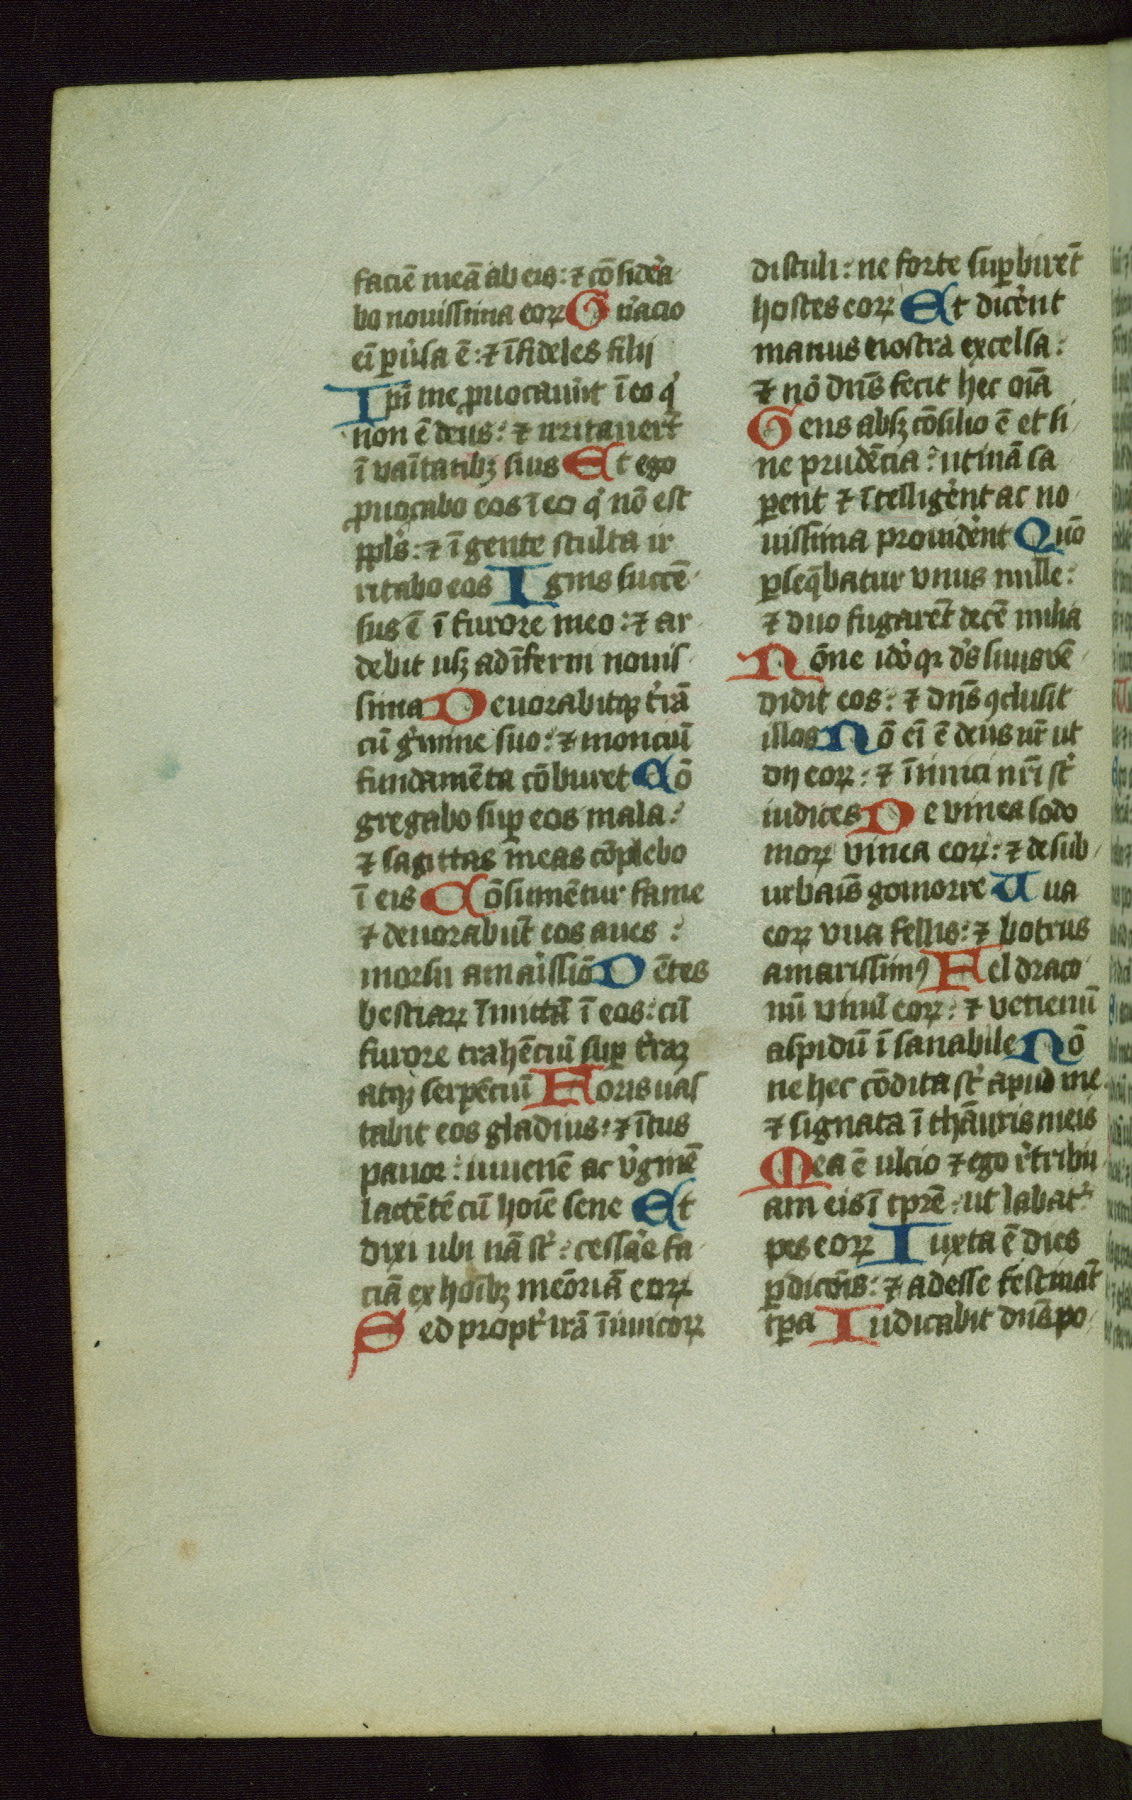 faciē meā ab eis: ⁊ cō sidera
bo nouissima eoꝝ Gn̄acio
eī ꝑuˀsa ē: ⁊ īfideles filij
Ipī me ꝓuocauer̄t ī eo qˀ
non ē deus: ⁊ irritauer̄t
ī vaītatibꝫ suis Et ego
ꝓuocabo eos ī eo qˀ nō est
ppl̄s: ⁊ ī gente stulta ir
ritabo eos Ignis succē
sus ē ī furore meo: ⁊ ar
debit usꝫ ad īferni nouis
sima Deuorabitqꝫ t̄rā
cū gˀmine suo: ⁊ monciū
fundamēta cōburet Cō
gregabo suꝑ eos mala:
⁊ sagittas meas cōplebo
ī eis Cōsumētur fame
⁊ deuorabūt eos aues:
morsu amarissiō Dētes
bestiaꝝ īmittā ī eos: cū
furore trahēciū suꝑ t̄raꝫ
atqꝫ serpēciū Foris uas
tabit eos gladius: ⁊ ītus
pauor: iuuenē ac vˀginē
lactētē cū hoīe sene Et
dixi ubi nā st̄: cessaˀe fa
ciā ex hoībꝫ meōriā eoꝝ
Sed proptˀ irā īimicoꝝ
distuli: ne forte suꝑbirēt
hostes eoꝝ Et dicˀent
manus nostra excelsa:
⁊ nō dn̄s fecit hec oīa
Gens absꝫ cōsilio ē et si
ne prudēcia: utinā sa
ꝑent ⁊ ītelligˀent ac no
uissima prouidˀent Quō
ꝑseq̄batur vnus mille:
⁊ duo fugarēt decē milia
Nōne idˀo qꝛ d̄s suus vē
didit eos: ⁊ dn̄s ꝯclusit
illos Nō eī ē deus nr̄ ut
dij eoꝝ: ⁊ īimici nr̄i st̄
iudices De vinea sodo
moꝝ vinea eoꝝ: ⁊ de sub
urbaīs gomorre Uua
eoꝝ vua fellis: ⁊ botrus
amarissimꝰ Fel draco
nū vinū eoꝝ: ⁊ venenū
aspidū īsanabile Nō
ne hec cōdita st̄ apud me
⁊ signata ī thāuris meis
Mea ē ulcio ⁊ ego rˀtribu
am eis ī tꝑre: ut labatˀ
pes eoꝝ Iuxta ē dies
ꝑdicōis: ⁊ adesse festināt
tꝑa Iudicabit dn̄s po